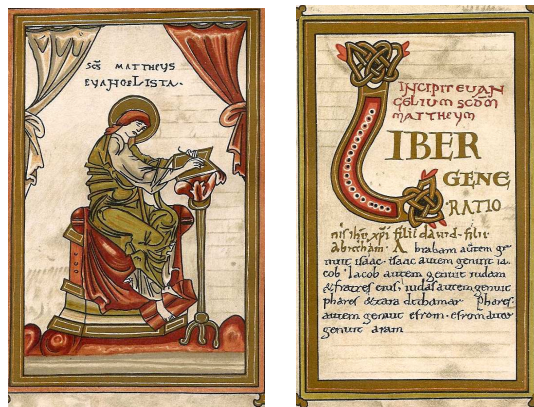 SCS MATTHEYS
EVANGELISTA·
INCIPIT EVAN
GELIUM SCDM
MATTHEYM
LIBER
GENE
RATIO
nis ihu xpi filii david · filii
abraham · Abraham autem ge
nuit isaac · isaac autem genuit ia
cob Iacob autem genuit iudam
& fratres eius · iudas autem genuit
phares & zara de thamar Phares
autem genuit efrom · efrom autem
genuit aram